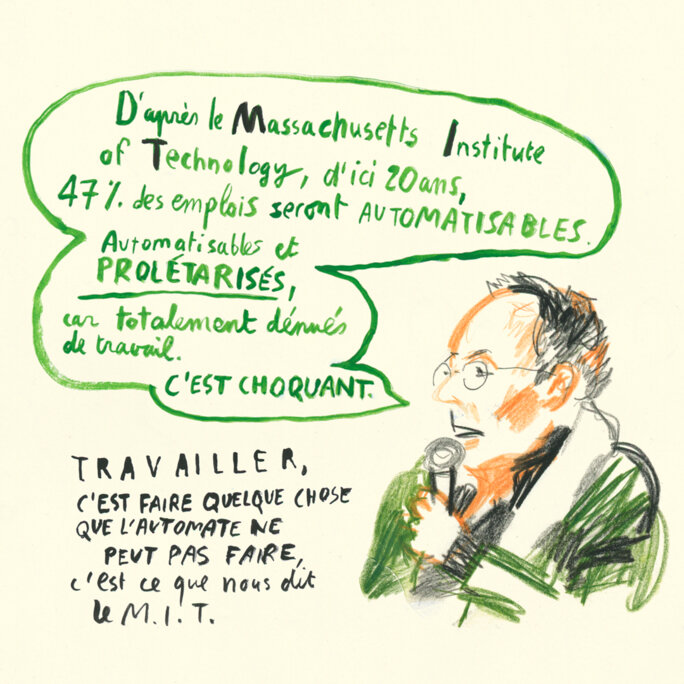 D'après le Massachusetts Institute
of Technology, d'ici 20 ans,
47% des emplois seront AUTOMATISABLES.
Automatisables et
PROLÉTARISÉS,
car totalement dénués
de travail.
C'EST CHOQUANT.
TRAVAILLER,
C'EST FAIRE QUELQUE CHOSE
QUE L'AUTOMATE NE
PEUT PAS FAIRE,
c'est ce que nous dit
le M.I.T.